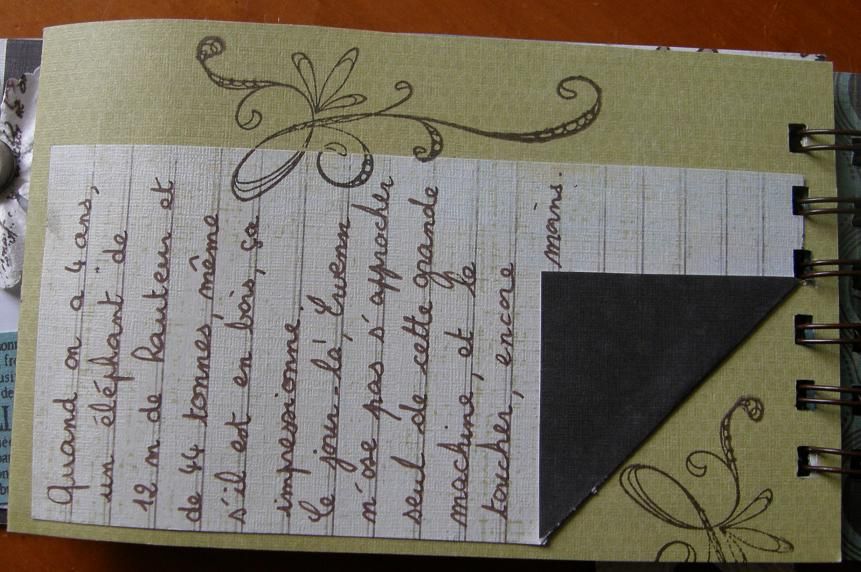 Quand on a 4 ans,
un éléphant de
12 m de hauteur et
de 44 tonnes, même
s'il est en bois, ça
impressionne.
Ce jour-là, Ewenn
n'ose pas s'approcher
seul de cette grande
machine, et le
toucher, encore
moins.